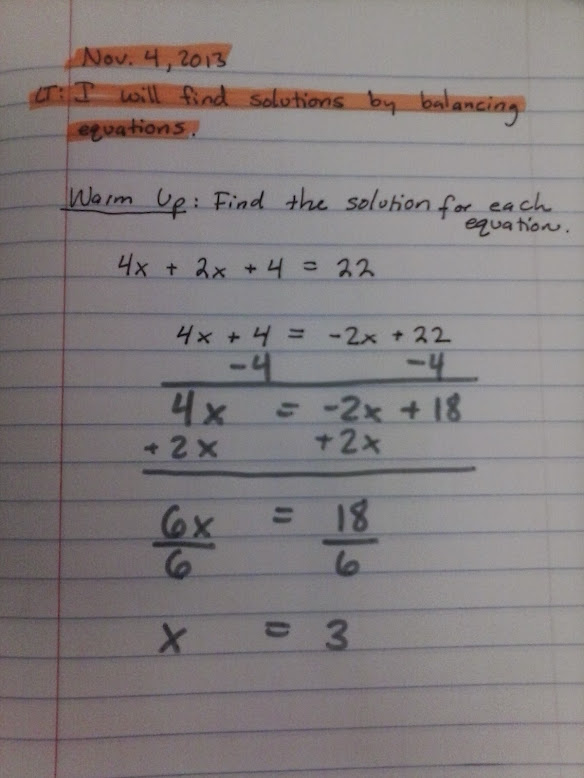 Nov. 4, 2013
LT: I will find solutions by balancing
equations.
Warm Up: Find the solution for each
equation.
4x + 2x + 4 = 22
4x + 4 = -2x + 22
-4 -4
4x = -2x + 18
+2x +2x
6x = 18
6 6
x = 3